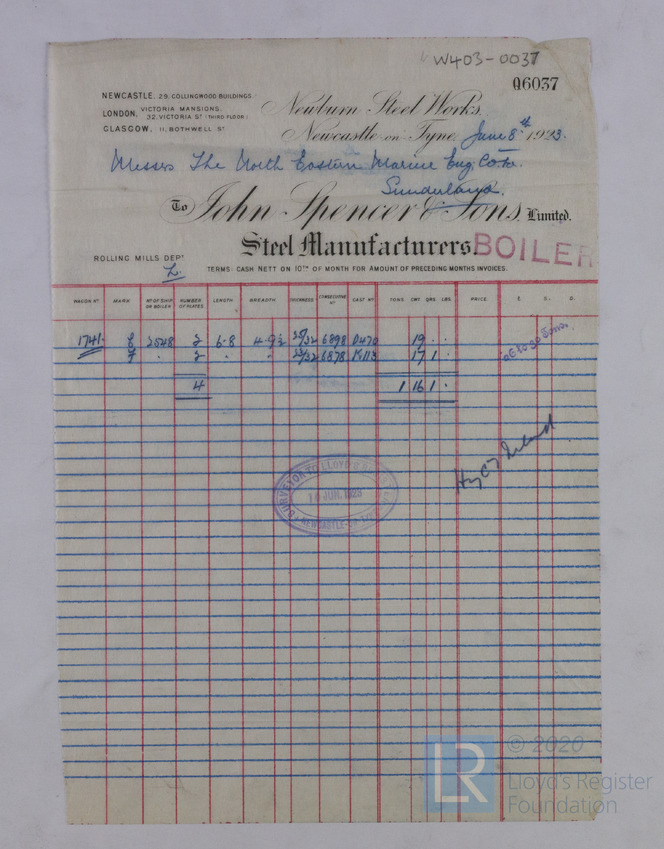 W403-0037
Q6037
NEWCASTLE, 29, COLLINGWOOD BUILDINGS.
LONDON, VICTORIA MANSIONS, 32, VICTORIA ST (THIRD FLOOR)
GLASGOW, 11, BOTHWELL ST
Newburn Steel Works,
Newcastle-on-Tyne, June 8th 1923.
Messrs The North Eastern Marine Eng. Co Ltd.
Sunderland.
To John Spencer & Sons, Limited.
Steel Manufacturers.
BOILER
ROLLING MILLS DEPT
L.
TERMS: CASH NETT ON 10TH OF MONTH FOR AMOUNT OF PRECEDING MONTHS INVOICES.
WAGON NO. MARK NO OF SHIP OR BOILER NUMBER OF PLATES LENGTH BREADTH THICKNESS CONSECUTIVE NO CAST NO TONS CWT. QRS. LBS. PRICE £ S. D.
1741. 2548 2 6-8 6898 19
2 " " 6878 K113 17 1
4 1 16 1
26 to 30 Tons.
SURVEYOR TO LLOYD'S
JUN. 1923
NEWCASTLE-ON-TYNE
LR
© 2020
Lloyd's Register
Foundation